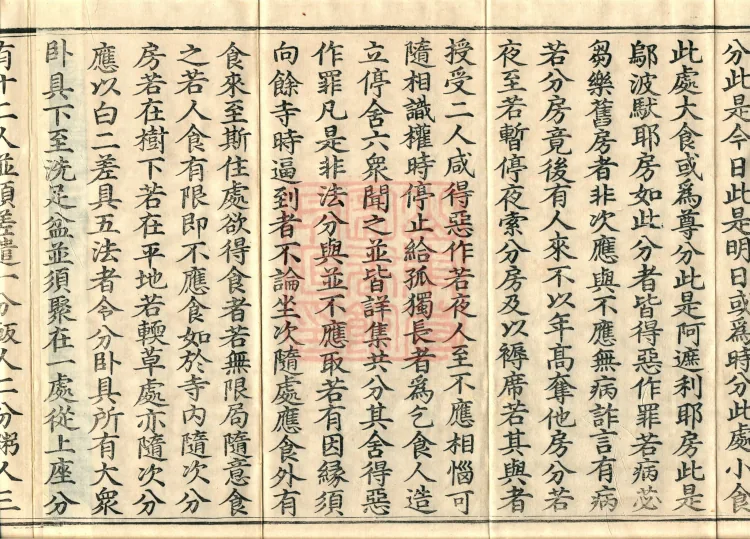 分此是今日此是明日或為時分此處小食
此處大食或為尊分此是阿遮利耶房此是
鄔波馱耶房如此分者皆得惡作罪若病苾
芻樂舊房者非次應與不應無病詐言有病
若分房竟後有人來不以年髙奪他房分若
夜至若暫停夜索分房及以褥席若其與者
授受二人咸得惡作若夜人至不應相惱可
隨相識權時停止給孤獨長者為乞食人造
立停舍六衆聞之並皆詳集共分其舍得惡
作罪凡是非法分與並不應取若有因縁須
向餘寺時逼到者不論坐次隨處應食外有
食來至斯住處欲得食者若無限局隨意食
之若人食有限即不應食如於寺內隨次分
房若在樹下若在平地若輭草處亦隨次分
應以白二差具五法者令分卧具所有大衆
卧具下至洗足盆並須聚在一處從上座分
有十二人並須差遣一分飯人二分粥人三